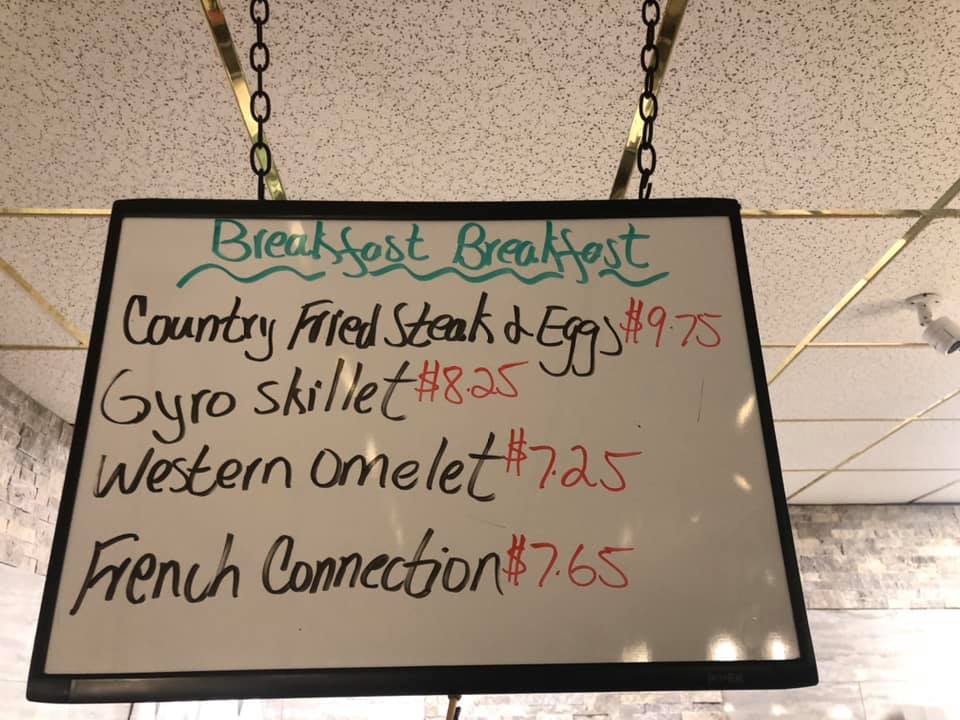 Breakfast Breakfast
Country Fried Steak & Eggs $9.75
Gyro skillet $8.25
Western omelet $7.25
French Connection $7.65